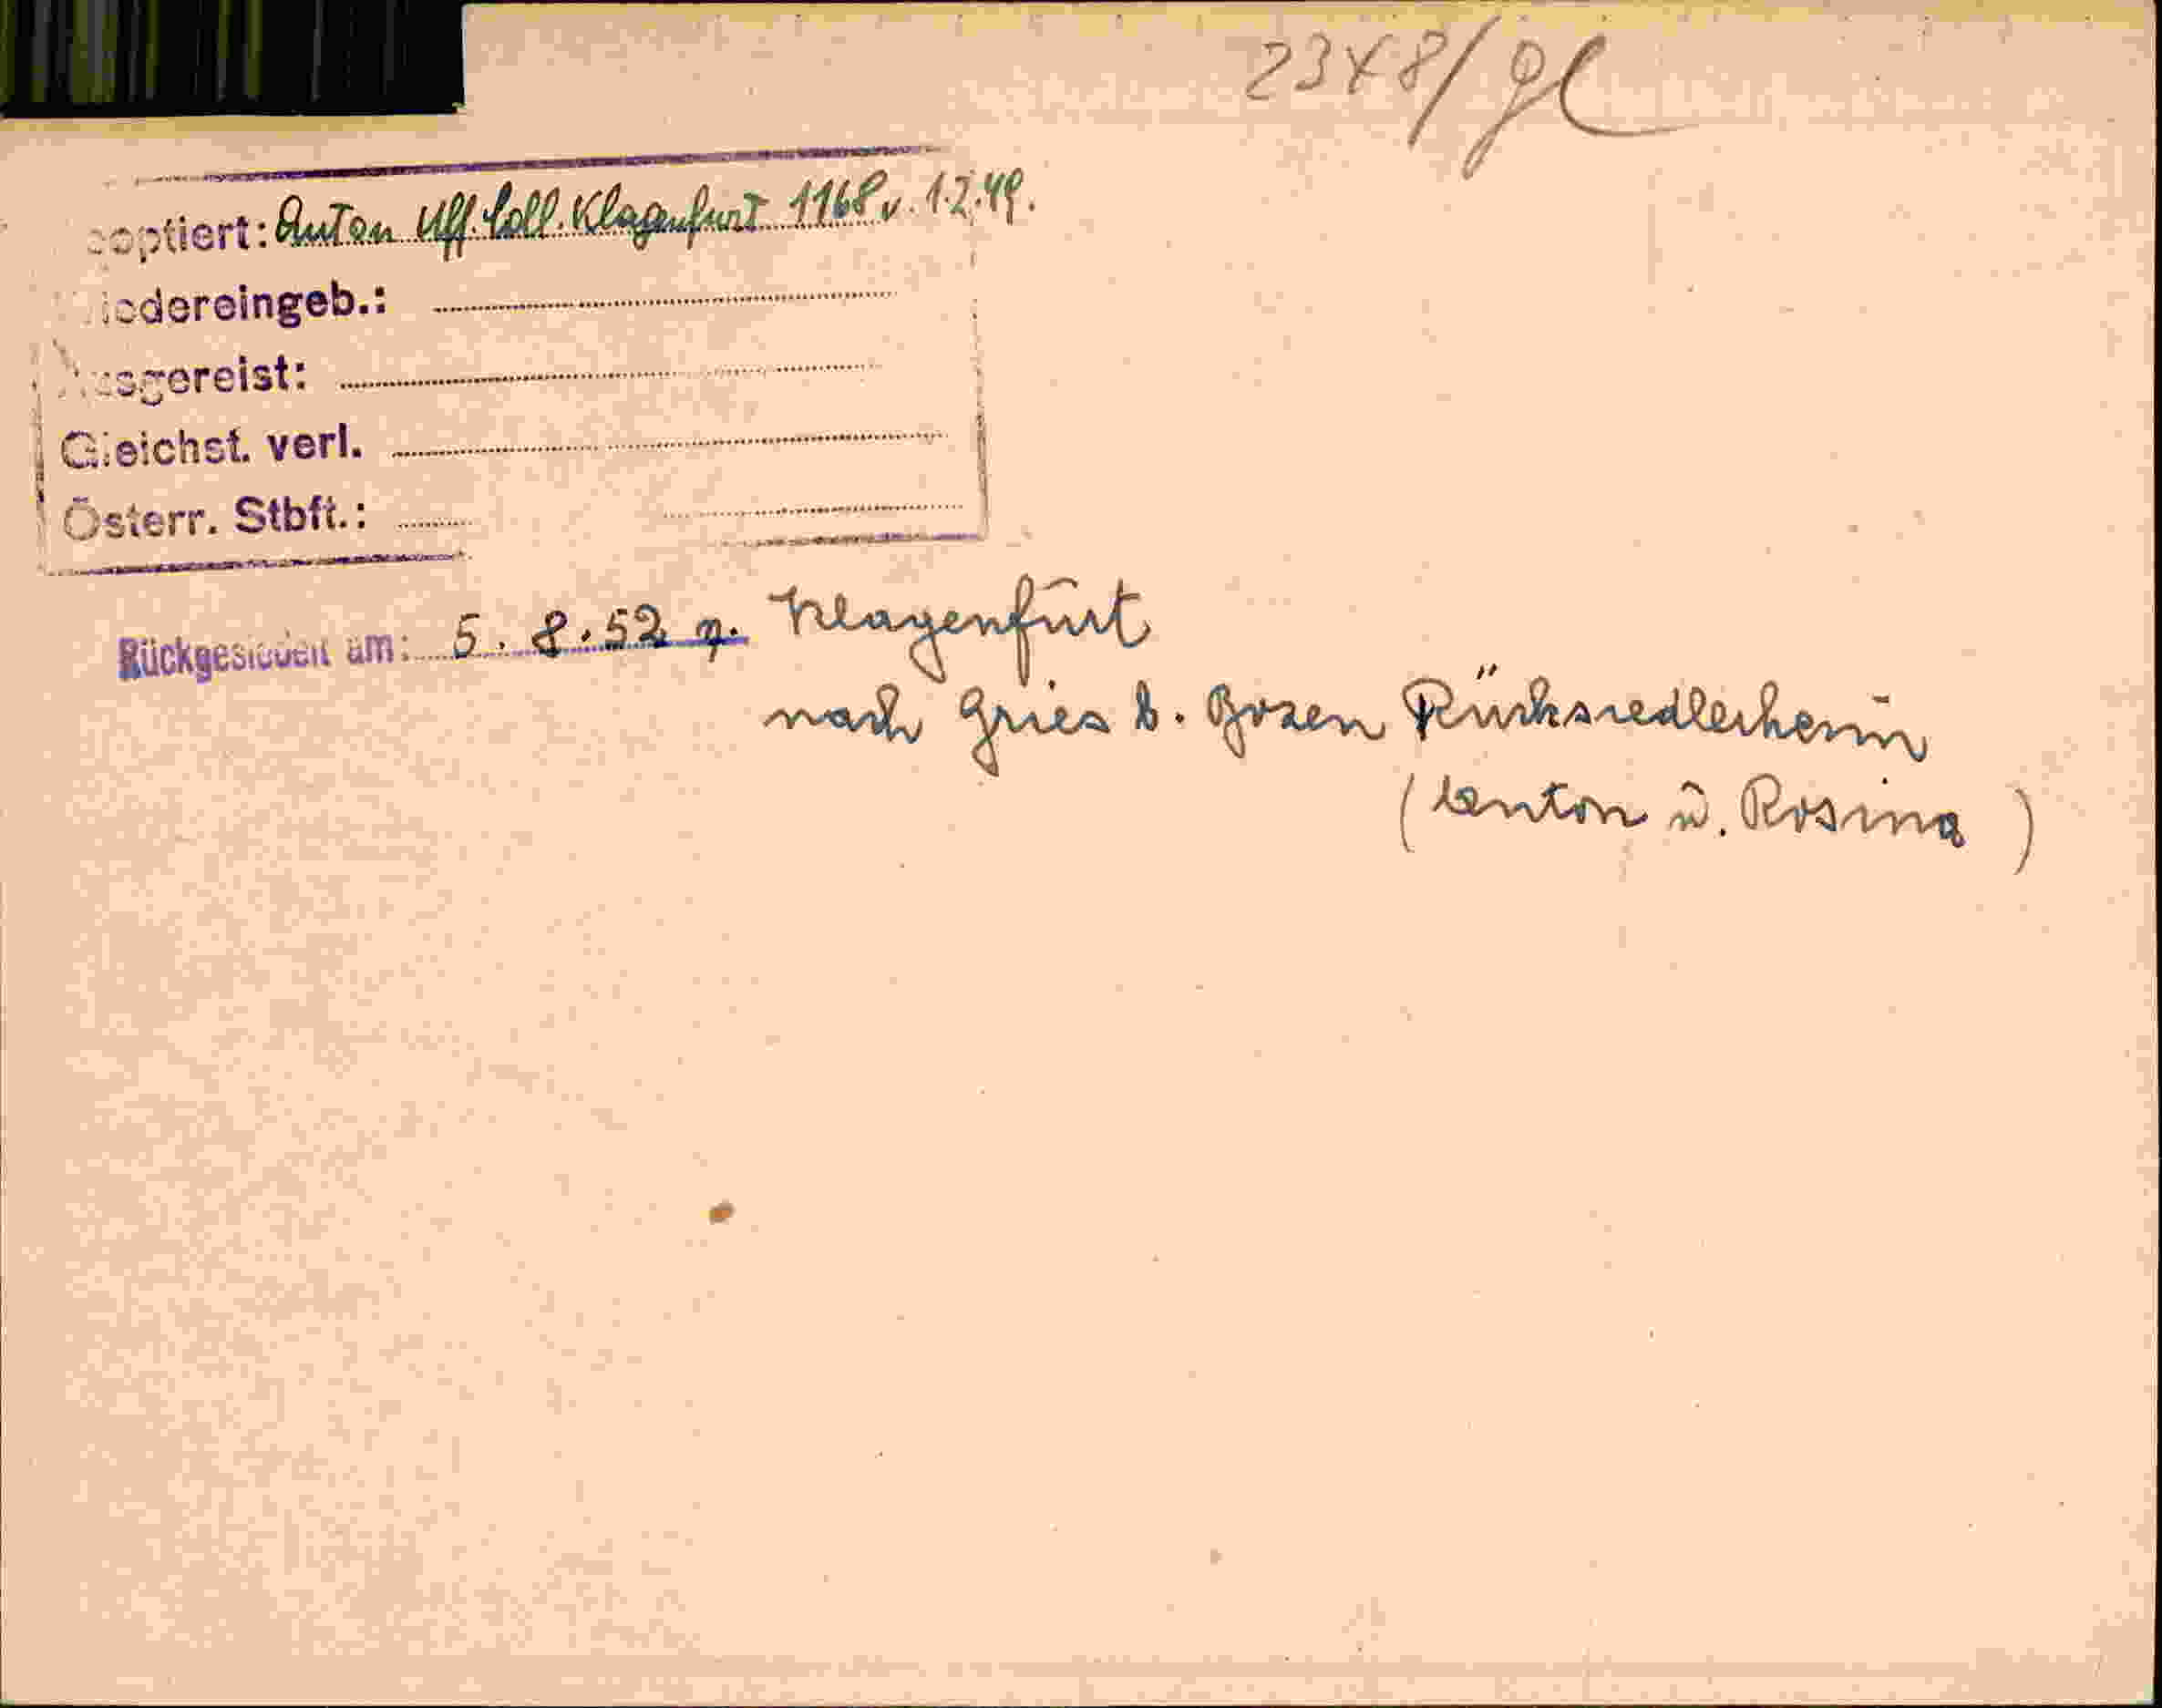 2348/gl
eoptiert: Anton Uff. Coll. Klagenfurt 1168 v. 1.2.49.
iedereingeb.:
Ausgereist:
Gleichst. verl.
Österr. Stbft.:
Rückgesiedelt am: 5.8.52 v. Klagenfurt
nach Gries b. Bozen Rücksiedlerheim
(Anton u. Rosina)